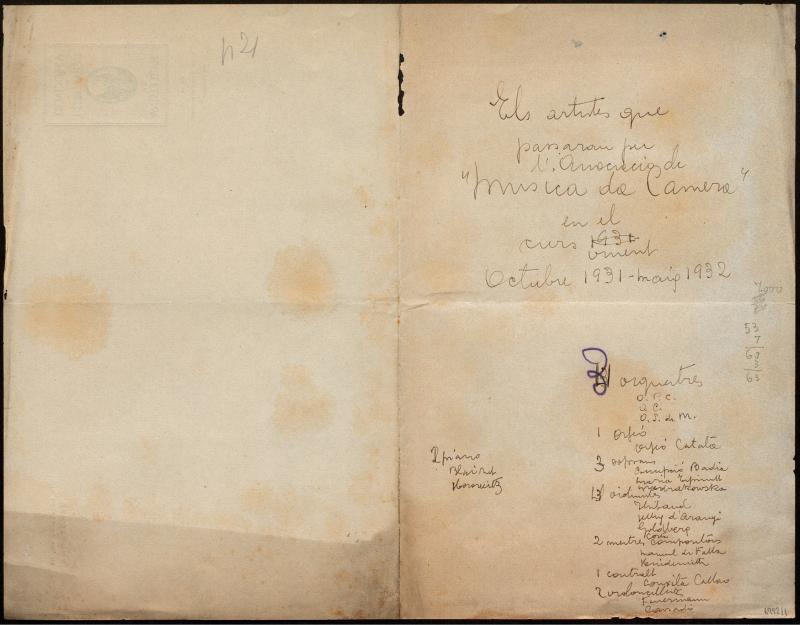 Els artistes que
passaran per
l'Associació de
"Musica da Camera"
en el
curs 1931
vinent
Octubre 1931-maig 1932
7000
53
7
60
3
63
orquestres
O. P. C.
O. S. de M.
1 orfeó
Orfeó Català
3 soprans
Concepció Badia
Maria
violinistes
Thibaud
Jelly d'Aranyi
Goldberg
2 mestres compositors
Manuel de Falla
Hindemith
1 contralt
Conxita Callao
2 violoncel·listes
Feuermann
Cassadó
2 piano
Horowitz